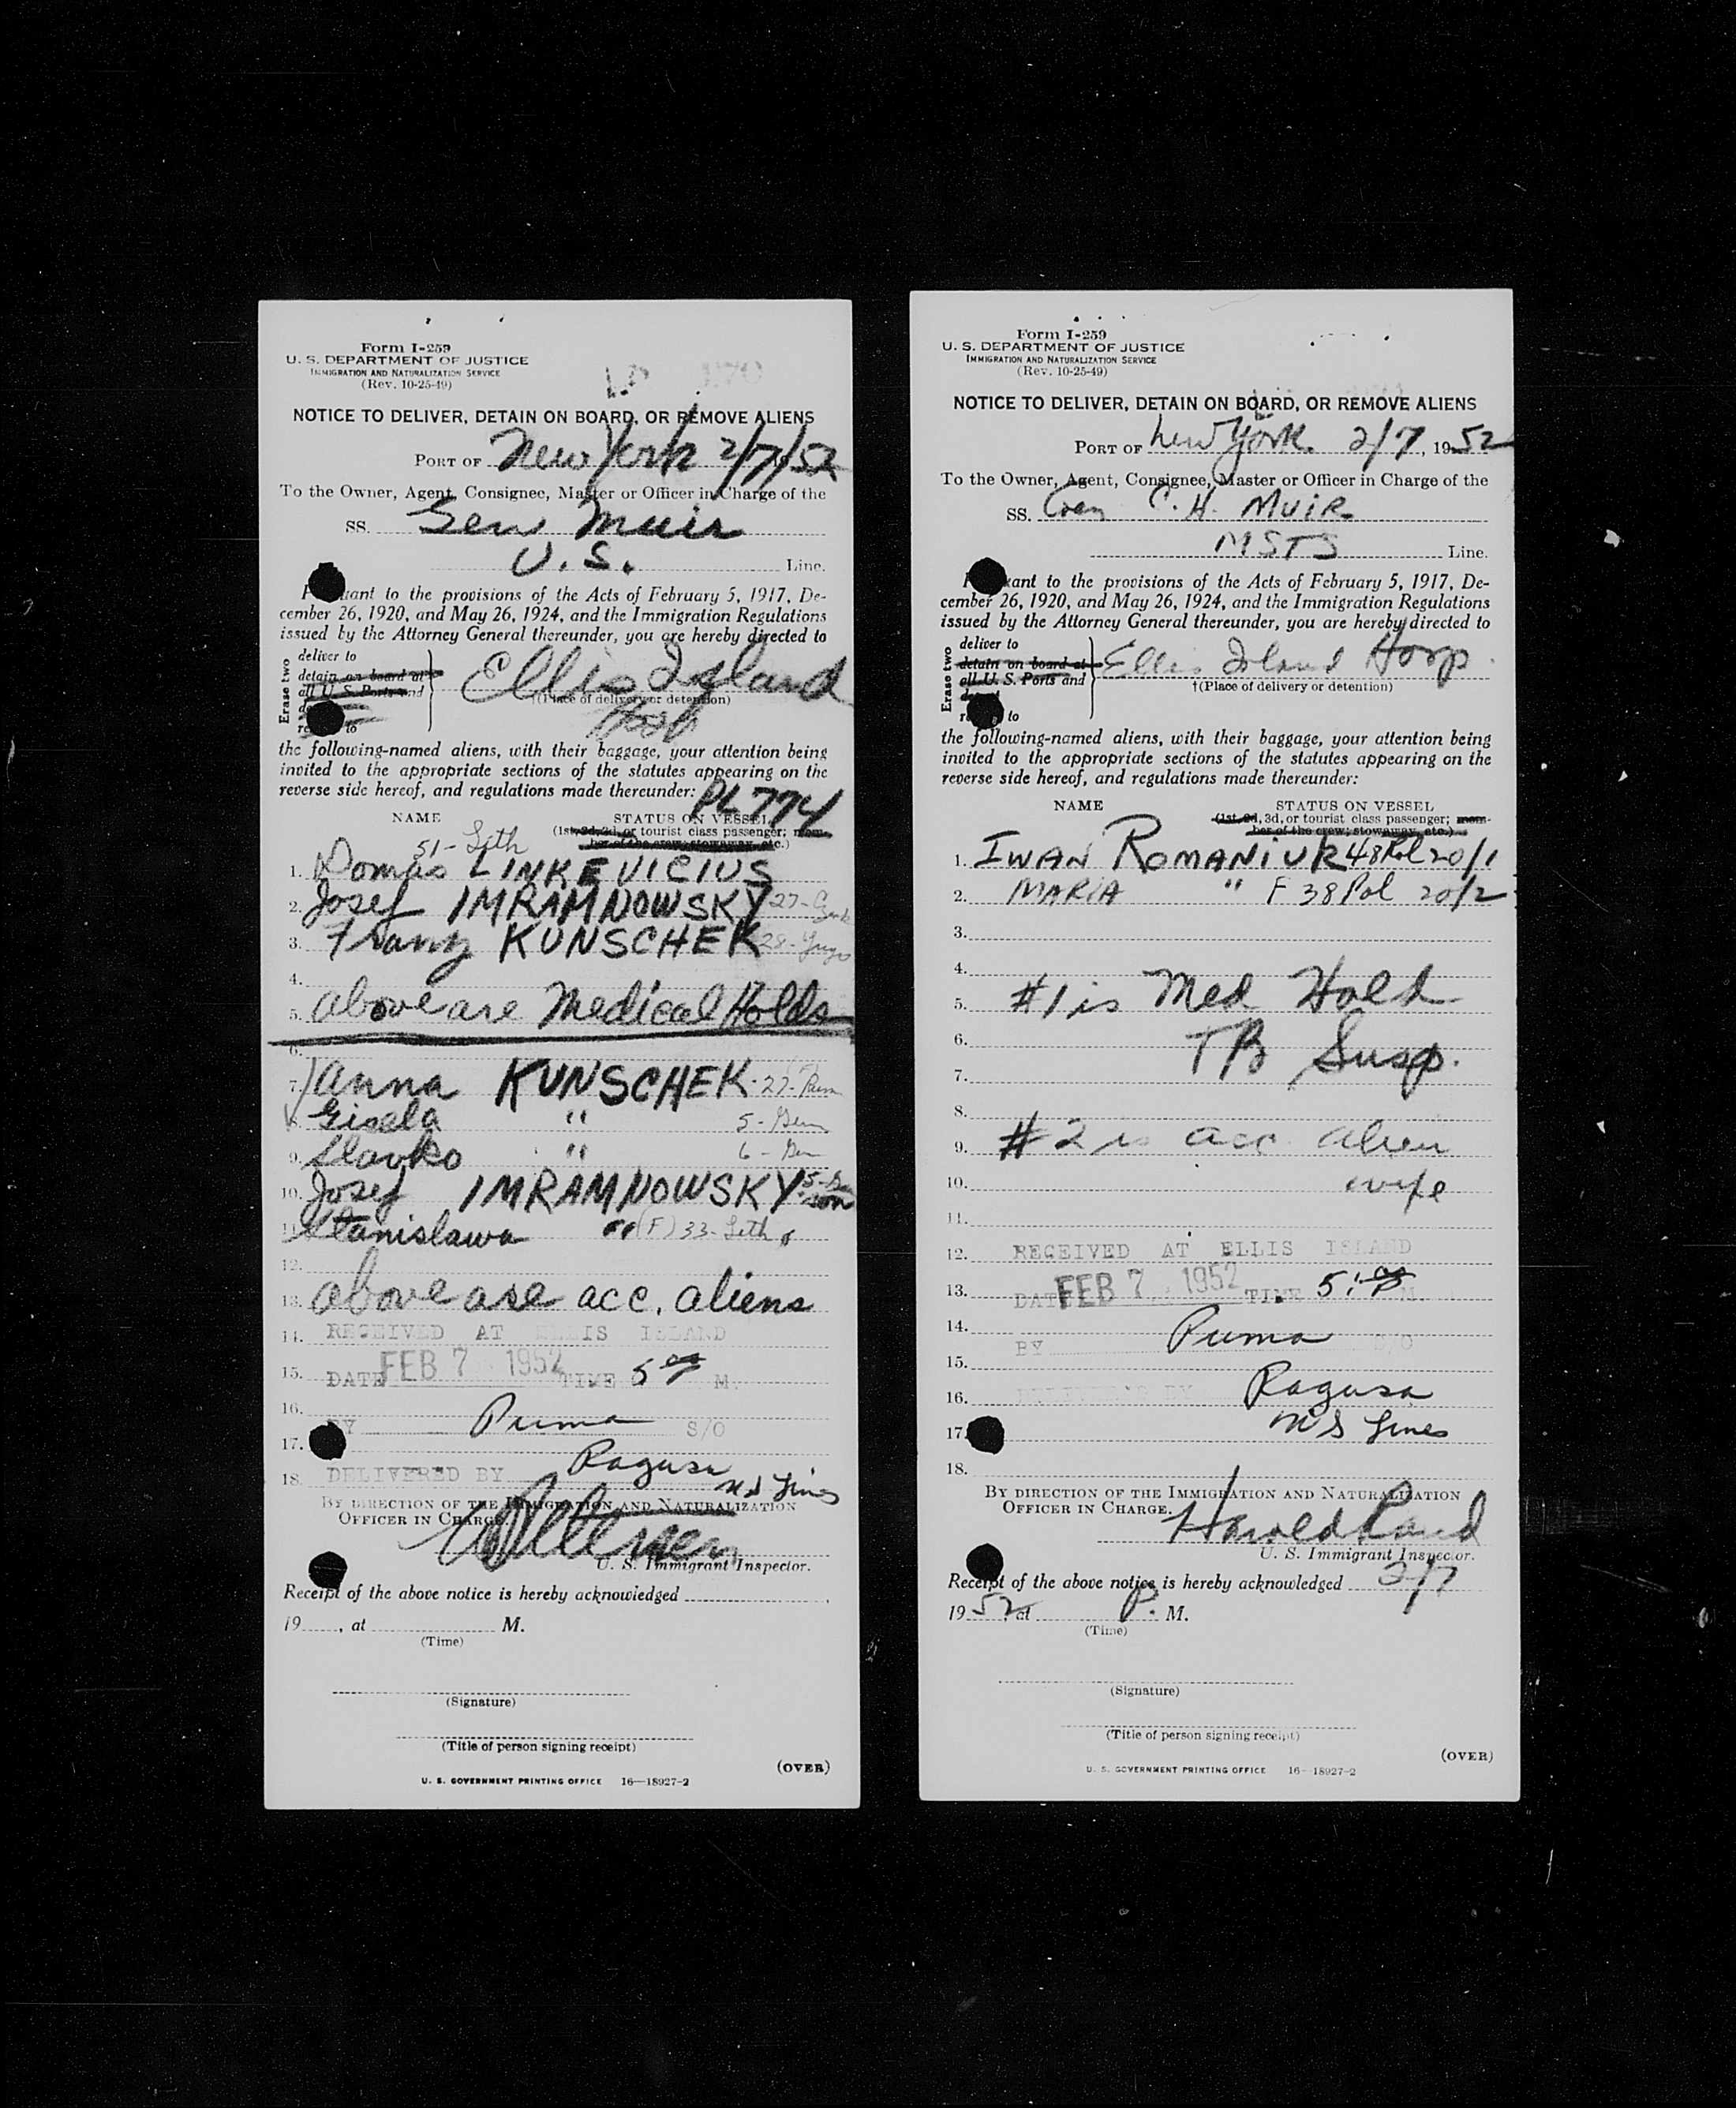 Form I-259
U. S. DEPARTMENT OF JUSTICE
IMMIGRATION AND NATURALIZATION SERVICE
(Rev. 10-25-49)
NOTICE TO DELIVER, DETAIN ON BOARD, OR REMOVE ALIENS
PORT OF New York 2/7/52
To the Owner, Agent, Consignee, Master or Officer in Charge of the
SS. Gen Muir
U.S. Line.
Pursuant to the provisions of the Acts of February 5, 1917, De-
cember 26, 1920, and May 26, 1924, and the Immigration Regulations
issued by the Attorney General thereunder, you are hereby directed to
Erase two
deliver to
detain on board at
all U. S. Ports and
to
Ellis Island
†(Place of delivery or detention)
the following-named aliens, with their baggage, your attention being
invited to the appropriate sections of the statutes appearing on the
reverse side hereof, and regulations made thereunder: PL 774
NAME STATUS ON VESSEL
(1st, 2d, 3d, or tourist class passenger; mem-
ber of the crew; stowaway, etc.)
51 - Lith
1. Domas LINKEVICIUS
2. Josef IMRAMNOWSKY 27-
3. Franz KUNSCHEK 28- Yugo
4.
5. above are Medical Holds
6.
7. Anna KUNSCHEK - 27-
8. Gisela " 5 -
9. Slavko " 6 -
10. Josef IMRAMNOWSKY 5- son
11. Stanislawa " (F) 33- Lith
12.
13. above are acc. aliens
14. RECEIVED AT ELLIS ISLAND
15. DATE FEB 7 1952 TIME 5 00 P M.
16.
BY Puma S/O
17. Ragusa
18. DELIVERED BY M S Lines
BY DIRECTION OF THE IMMIGRATION AND NATURALIZATION
OFFICER IN CHARGE.
U. S. Immigrant Inspector.
Receipt of the above notice is hereby acknowledged
19 , at M.
(Time)
(Signature)
(Title of person signing receipt)
(OVER)
U. S. GOVERNMENT PRINTING OFFICE 16—18927-2
Form I-259
U. S. DEPARTMENT OF JUSTICE
IMMIGRATION AND NATURALIZATION SERVICE
(Rev. 10-25-49)
NOTICE TO DELIVER, DETAIN ON BOARD, OR REMOVE ALIENS
PORT OF New York 2/7, 1952
To the Owner, Agent, Consignee, Master or Officer in Charge of the
SS. Gen C. H. MUIR
MSTS Line.
Pursuant to the provisions of the Acts of February 5, 1917, De-
cember 26, 1920, and May 26, 1924, and the Immigration Regulations
issued by the Attorney General thereunder, you are hereby directed to
Erase two
deliver to
detain on board at
all U. S. Ports and
to
Ellis Island Hosp.
†(Place of delivery or detention)
the following-named aliens, with their baggage, your attention being
invited to the appropriate sections of the statutes appearing on the
reverse side hereof, and regulations made thereunder:
NAME STATUS ON VESSEL
(1st, 2d, 3d, or tourist class passenger; mem-
ber of the crew; stowaway, etc.)
1. IWAN ROMANIUK 48 Pol 20/1
2. MARIA " F 38 Pol 20/2
3.
4.
5. #1 is Med Hold
6. TB Susp.
7.
8.
9. #2 is acc. alien
10. wife
11.
12. RECEIVED AT ELLIS ISLAND
13. DATE FEB 7 1952 TIME 5:00 P M.
14. BY Puma S/O
15.
16. DELIVERED BY Ragusa
17. M S Lines
18.
BY DIRECTION OF THE IMMIGRATION AND NATURALIZATION
OFFICER IN CHARGE.
Harold Rand
U. S. Immigrant Inspector.
Receipt of the above notice is hereby acknowledged 2/7
1952, at P. M.
(Time)
(Signature)
(Title of person signing receipt)
(OVER)
U. S. GOVERNMENT PRINTING OFFICE 16—18927-2